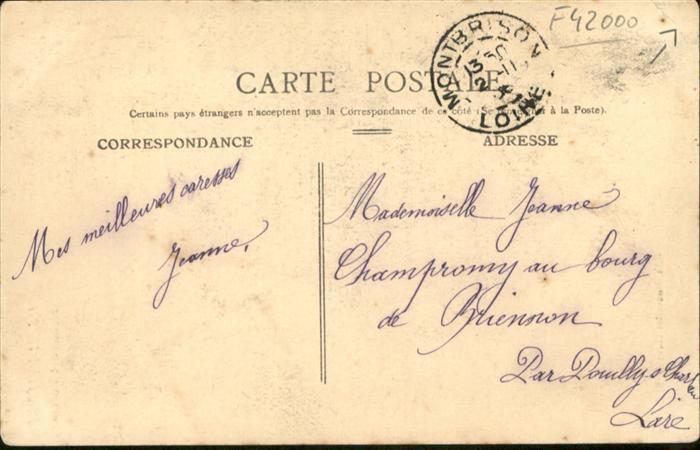 F42000
MONTBRISON
LOIRE
CARTE POSTALE
Certains pays étrangers n'acceptent pas la Correspondance de ce côté (Se à la Poste).
CORRESPONDANCE
ADRESSE
Mes meilleures caresses
Jeanne.
Mademoiselle Jeanne
Champromy au bourg
de Briennon
Par Pouilly s Charlieu
Loire